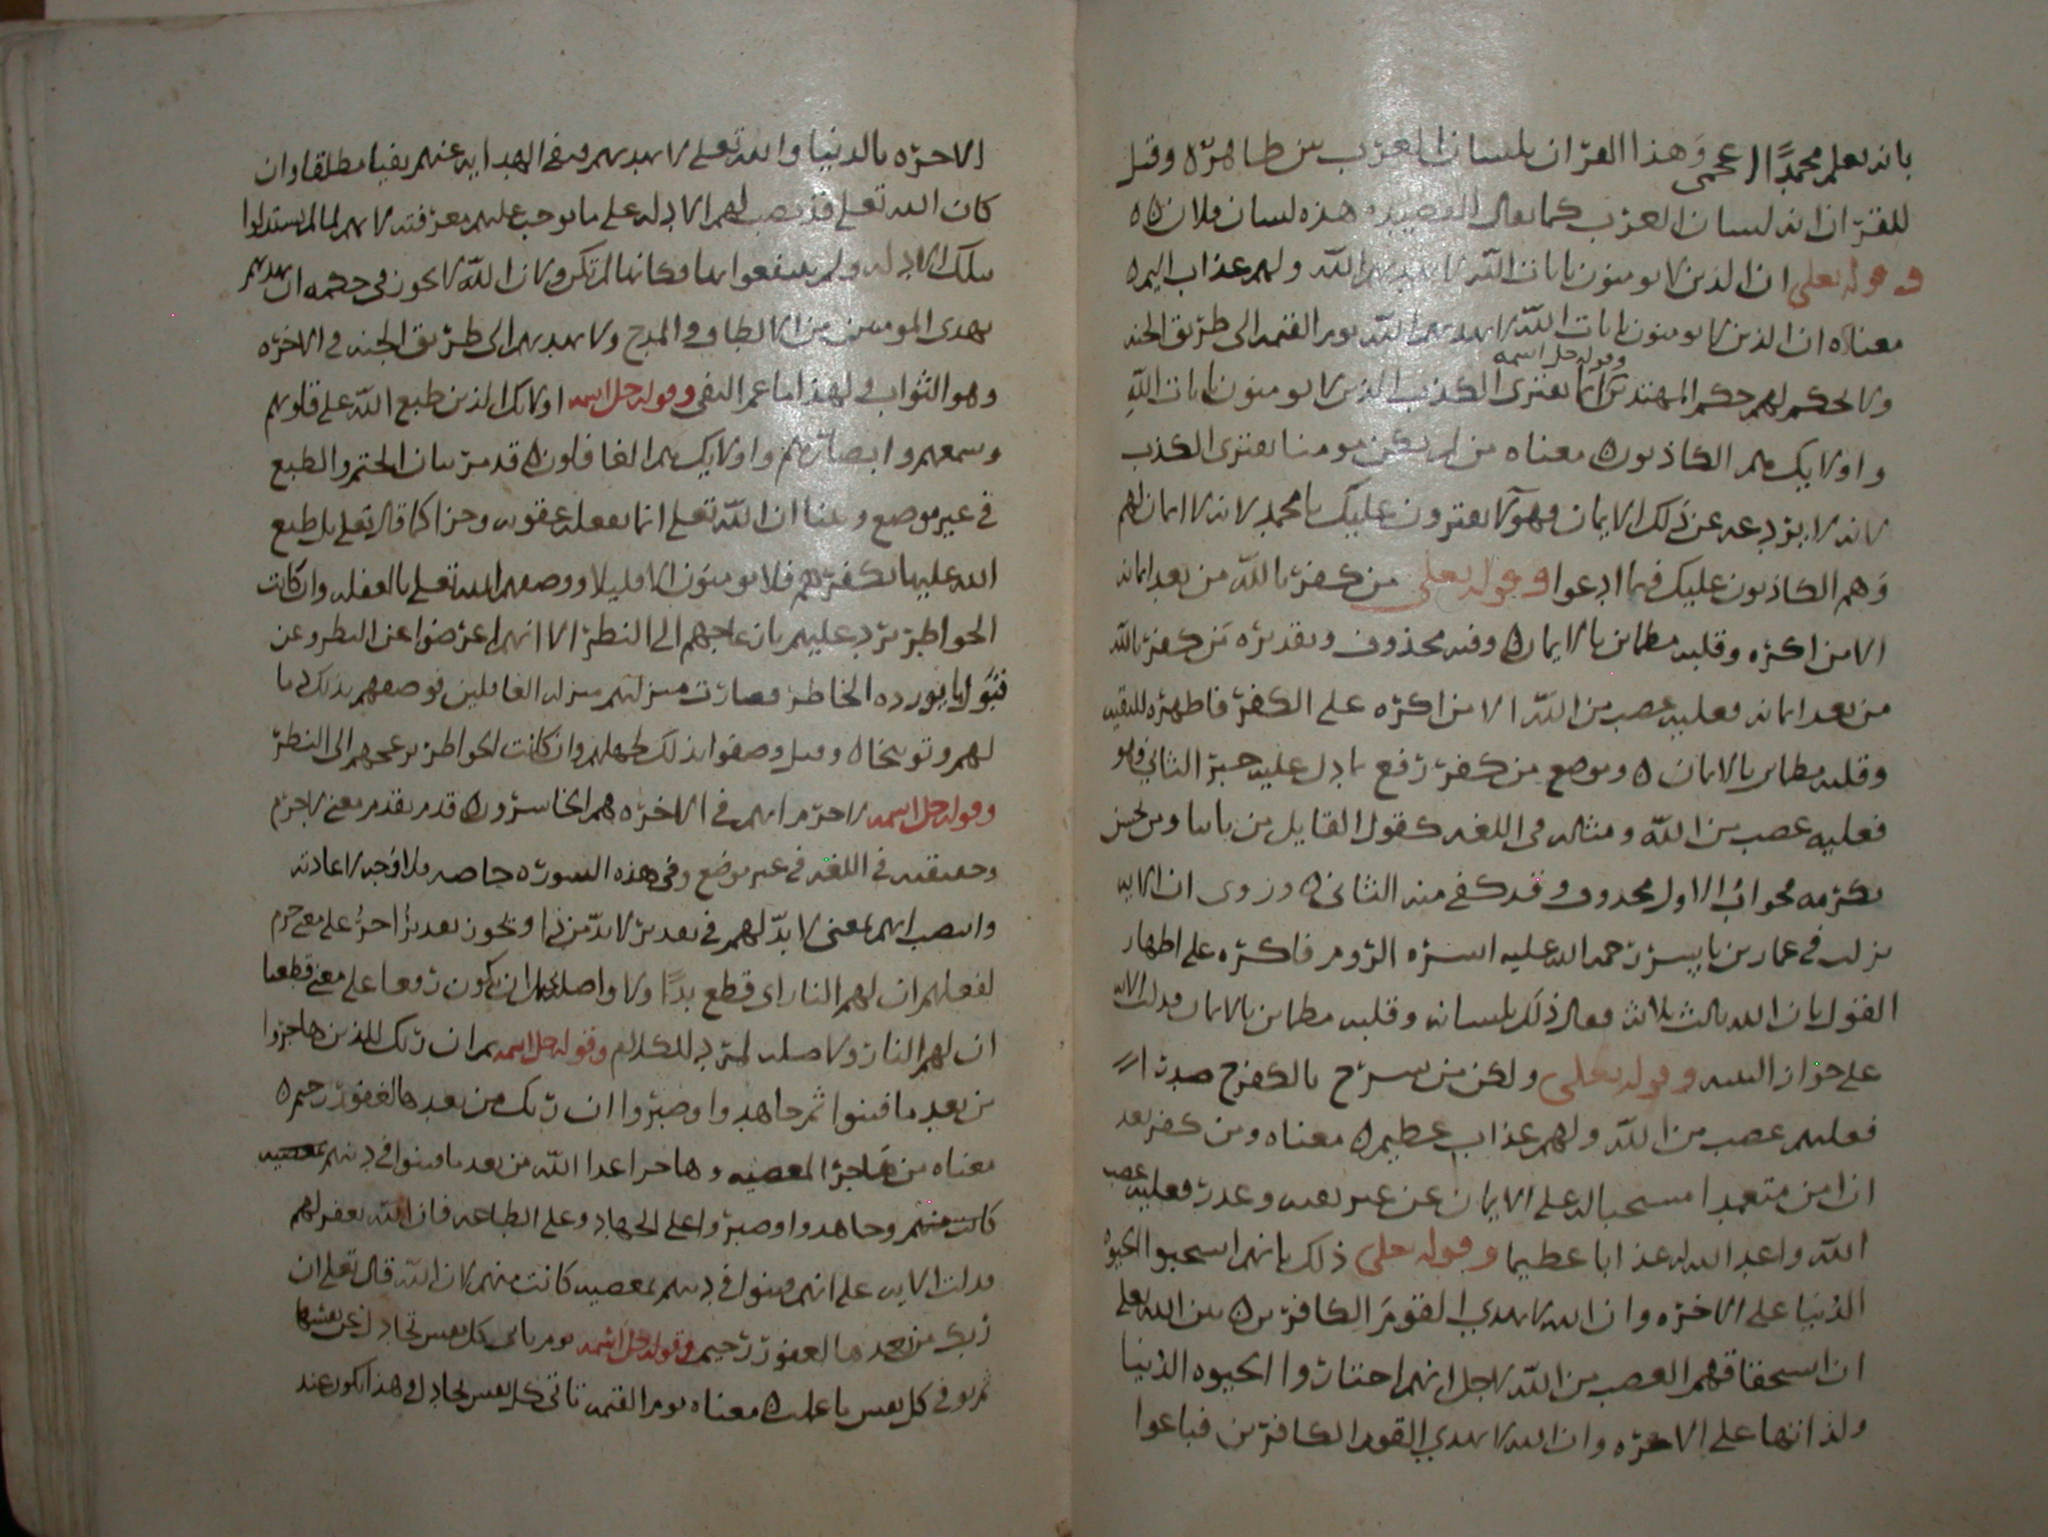 بانه يعلم محمدًا اعجمي وهذا القرآن بلسان العرب بين ظاهره وقيل
للقرآن انه لسان العرب كما يقال للقصيدة هذه لسان فلان ه
وقوله تعلى ان الذين لا يومنون بايات الله لا يهديهم الله ولهم عذاب اليم ه
معناه ان الذين لا يومنون بايات الله لا يهديهم الله يوم القيمه الى طريق الجنه
ولا يحكم لهم حكم المهتدين وقوله جل اسمه انما يفترى الكذب الذين لا يومنون بايات الله
واولايك هم الكاذبون ه معناه من لم يكن مومنا يفترى الكذب
لانه لا يردعه عن ذلك الايمان وهولا يفترون عليك يا محمد لانه لا ايمان لهم
وهم الكاذبون عليك فيما ادعوا وقوله تعلى من كفر بالله من بعد ايمانه
الا من اكره وقلبه مطماين بالايمان ه وفيه محذوف وتقديره من كفر بالله
من بعد ايمانه فعليه غضب من الله الا من اكره على الكفر فاظهره للتقيه
وقلبه مطماين بالايمان ه وموضع من كفر رفع بما دل عليه خبر الثاني فهو
فعليه غضب من الله ومثاله في اللغه كقول القايل من ياتنا ومن يحسن
نكرمه فجواب الاول محذوف وقد كفى منه الثاني ه وروى ان الايه
نزلت في عمار بن ياسر رحمه الله عليه اسره الروم فاكره على اظهار
القول بان الله ثالث ثلاثه فقال ذلك بلسانه وقلبه مطماين بالايمان فدلت الايه
على جواز التقيه وقوله تعلى ولكن من شرح بالكفر صدرا
فعليهم غضب من الله ولهم عذاب عظيم ه معناه ومن كفر بعد
ان امن متعمدا مستحبا له على الايمان عن غير تقيه وعدر فعليه غضب
الله واعد الله له عذابا عظيما وقوله تعلى ذلك بانهم استحبوا الحيوه
الدنيا على الاخره وان الله لا يهدي القوم الكافرين ه بين الله تعلى
ان استحقاقهم الغضب من الله لاجل انهم اختاروا الحيوه الدنيا
ولذاتها على الاخره وان الله لا يهدي القوم الكافرين فباعوا
الاخره بالدنيا والله تعلى لا يهديهم ونفى الهدايه عنهم نفيا مطلقا وان
كان الله تعلى قد نصب لهم الادله على ما توجب عليهم معرفته لانهم لما لم يستدلوا
بتلك الادله ولم ينتفعوا بها فكانها لم تكن ولان الله لا يكون في حكمه ان يهديهم
بهدى المومنين من الالطاف والمدح ولا يهديهم الى طريق الجنه في الاخره
وهو الثواب فلهذا ما عم النفي وقوله جل اسمه اولايك الذين طبع الله على قلوبهم
وسمعهم وابصارهم واولايك هم الغافلون ه قد مر بيان الختم والطبع
في غير موضع وبينا ان الله تعلى انما يفعله عقوبه وجزا كما قال تعلى بل طبع
الله عليها بكفرهم فلا يومنون الا قليلا ووصفهم الله تعلى بالغفله وان كانت
الخواطر ترد عليهم بازعاجهم الى النظر الا انهم اعرضوا عن النظر وعن
قبول ما يورده الخاطر فصارت منزلتهم منزله الغافلين فوصفهم بذلك ذما
لهم وتوبيخا ه وقيل وصفوا بذلك لجهلهم وان كانت الخواطر تزعجهم الى النظر
وقوله جل اسمه لا جرم انهم في الاخره هم الخاسرون ه قد تقدم معنى لا جرم
وحقيقته في اللغه في غير موضع وفي هذه السوره خاصه فلا وجه لاعادته
وانتصب انهم بمعنى لا بد لهم في تقدير لا بد من ذا ويجوز تقدير اخر على معنى جرم
لفعلهم ان لهم النار اى قطع بدًا ولا واصله ان يكون رفعا على معنى قطعيا
ان لهم النار ولا صله لرد للكلام وقوله جل اسمه ثم ان ربك للذين هاجروا
من بعد ما فتنوا ثم جاهدوا وصبروا ان ربك من بعدها لغفور رحيم ه
معناه من هاجر المعصيه وهاجر اعدا الله من بعد ما فتنوا في دينهم بمعصيه
كانت منهم وجاهدوا وصبروا على الجهاد وعلى الطاعه فان الله يغفر لهم
فدلت الايه على انهم فتنوا في دينهم بمعصيه كانت منهم لان الله قال تعلى ان
ربك من بعدها لغفور رحيم وقوله جل اسمه يوم ياتي كل نفس تجادل عن نفسها
ثم توفى كل نفس ما عملت ه معناه يوم القيمه تاتى كل نفس تجادل وهذا يكون عند